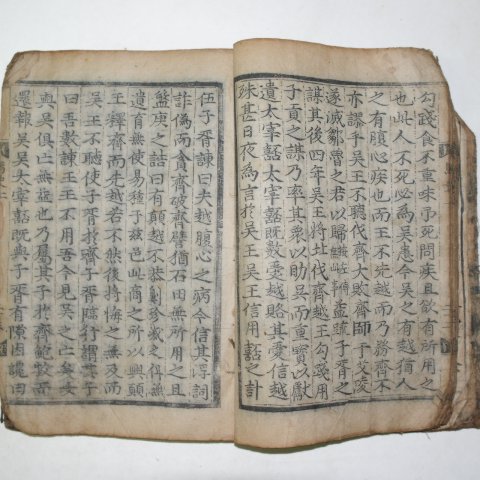 勾踐食不重味弔死問疾且欲有所用之
也此人不死必爲吳患今吳之有越猶人
之有腹心疾也而王不先越而乃務齊不
亦謬乎吳王不聽伐齊大敗齊師于艾陵
遂滅鄒魯之君以歸益疏子胥之
謀其後四年吳王將北伐齊越王勾踐用
子貢之謀乃率其衆以助吳而重寶以獻
遺太宰嚭太宰嚭旣數受越賂其愛信越
殊甚日夜爲言於吳王吳王信用嚭之計
伍子胥諫曰夫越腹心之病今信其浮詞
詐僞而貪齊破齊譬猶石田無所用之且
盤庚之誥曰有顚越不恭劓殄滅之俾無
遺育無使易種于玆邑此商之所以興願
王釋齊而先越若不然後將悔之無及而
吳王不聽使子胥於齊子胥臨行謂其子
曰吾數諫王王不用吾今見吳之亡矣汝
與吳俱亡無益也乃屬其子於齊鮑牧而
還報吳吳太宰嚭旣與子胥有隙因讒曰